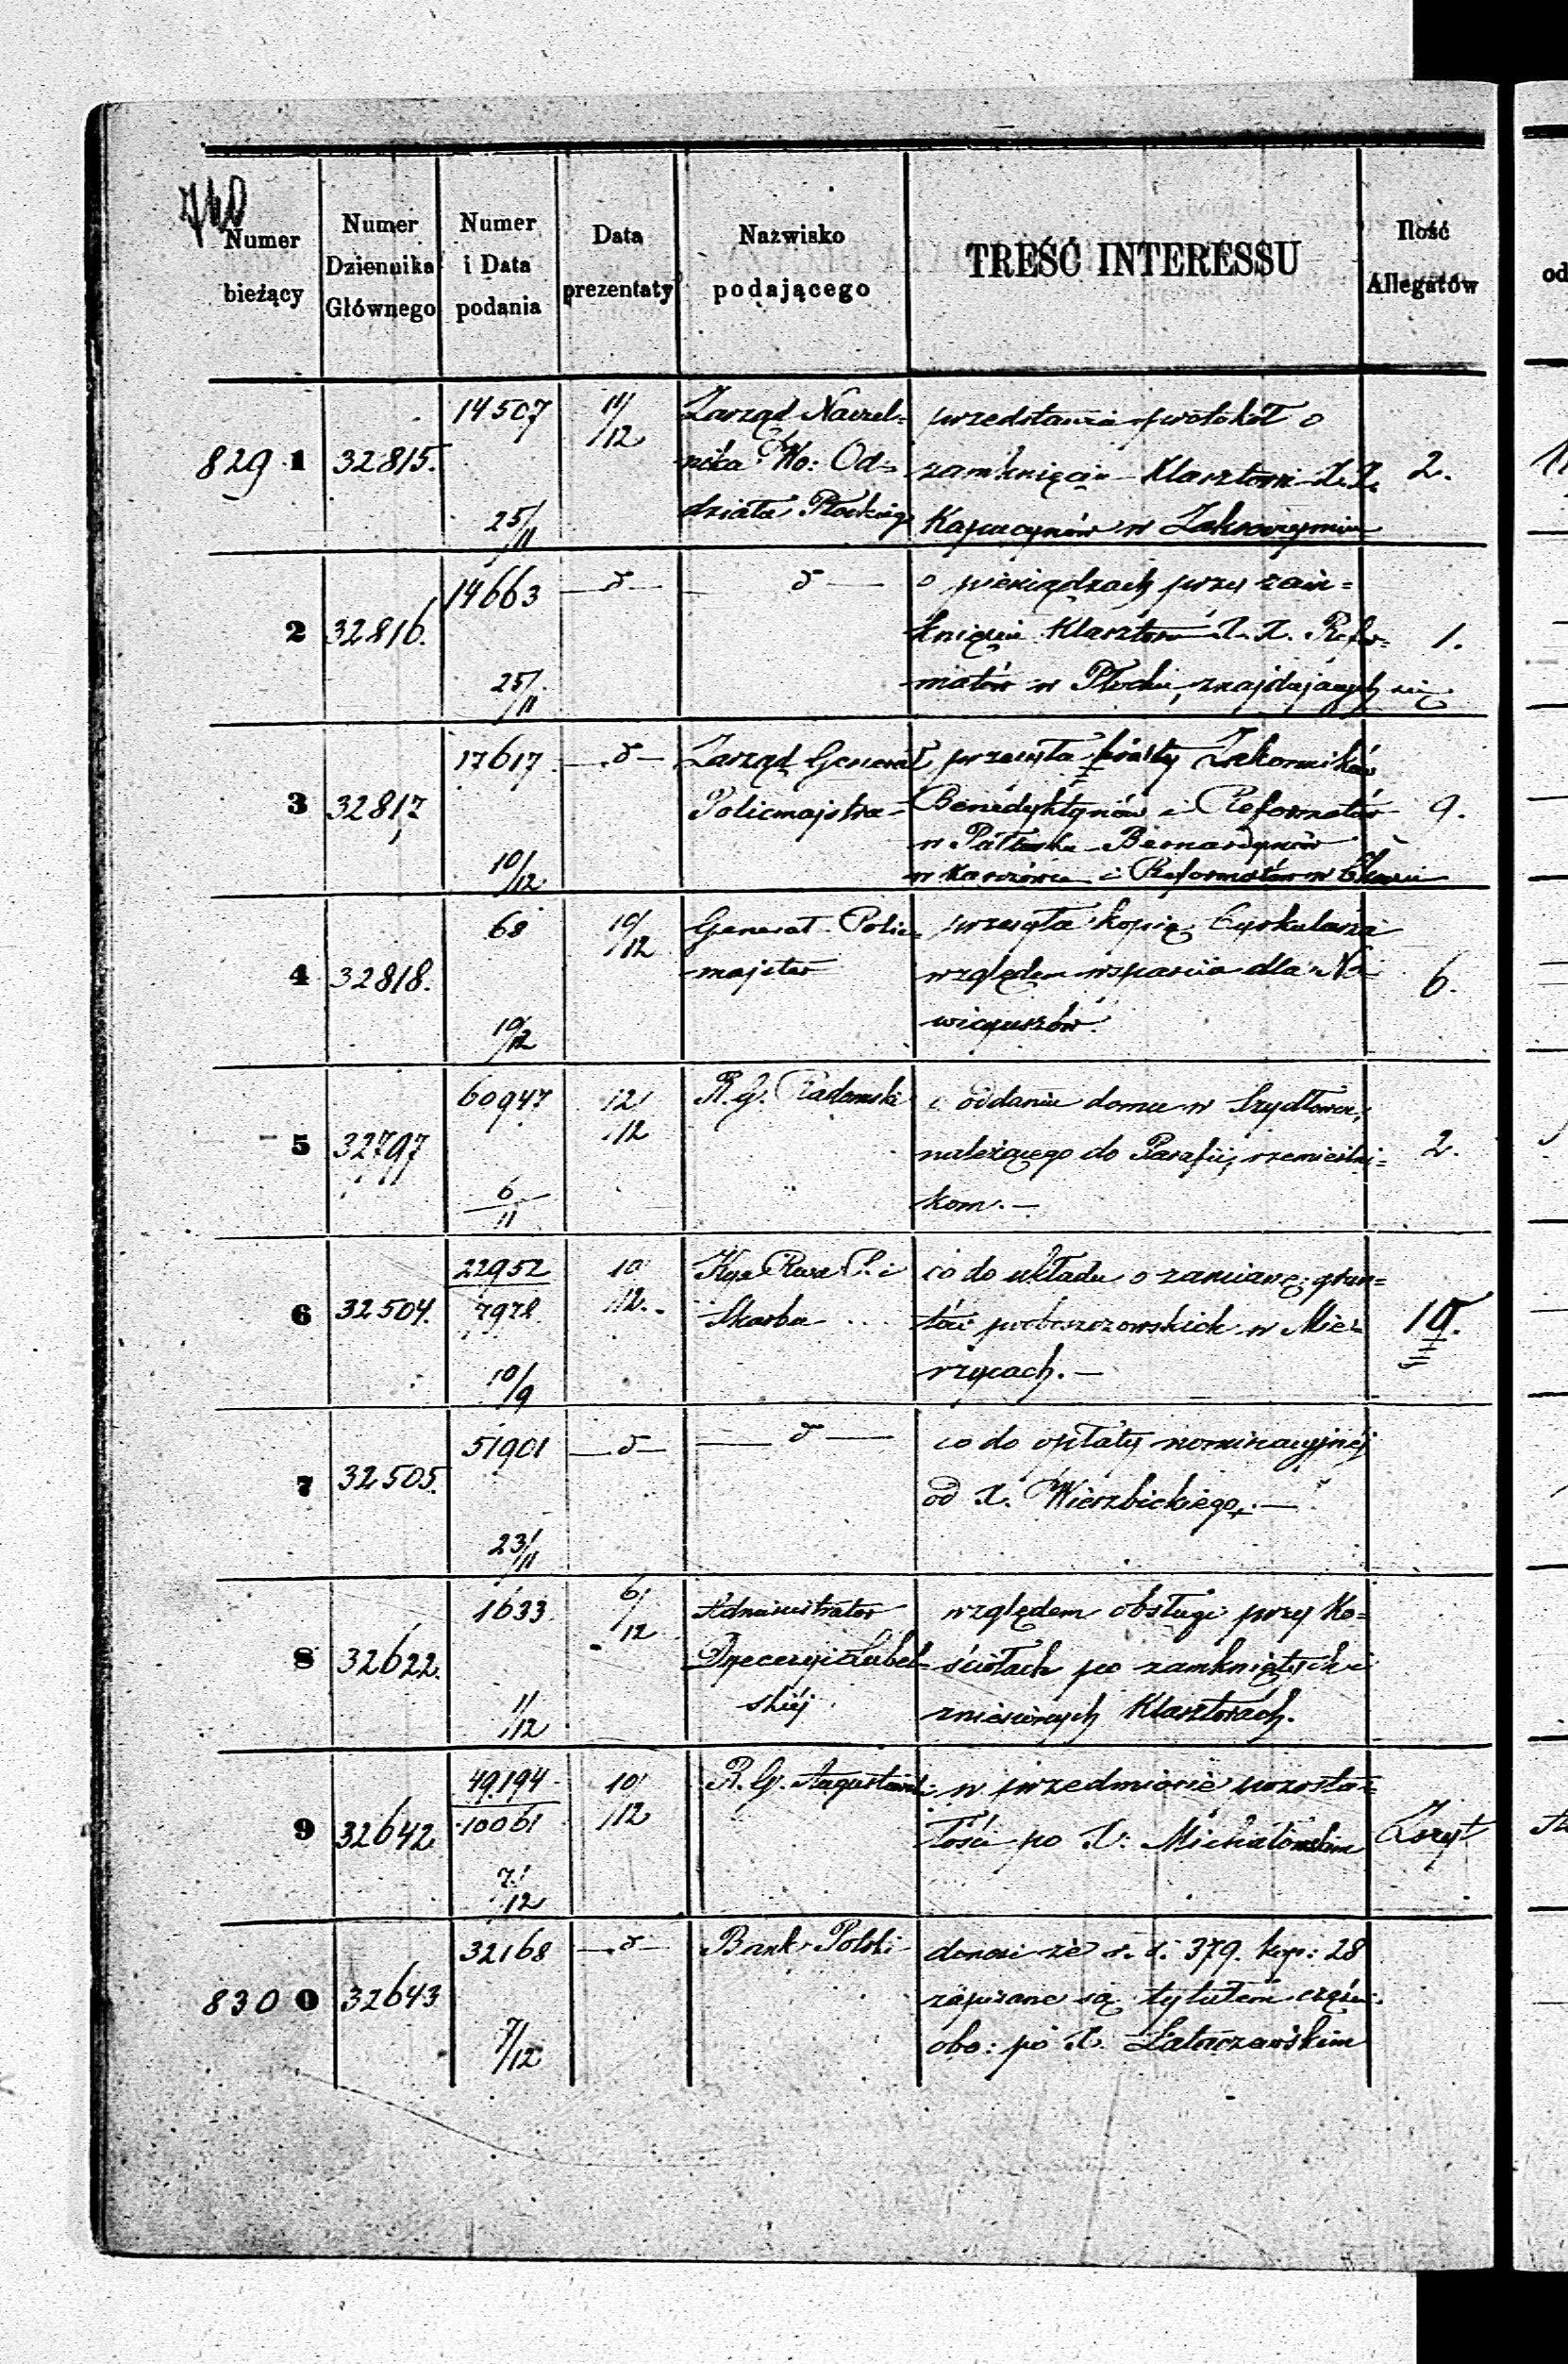 Numer bieżący
Numer Dziennika Głównego
Numer i Data podania
Data prezentaty
Nazwisko podającego
TREŚĆ INTERESSU
Ilość Allegatów
829 1 32815. 14507 25/11 11/12
Zarząd Naczel-
nika Wo: Od-
działa Płockiego
przedstawia protokół o
zamknięciu Klasztoru X.X.
Kapucynów w Zakroczymiu
2.
2 32816. 14663 25/11 — d —
— d —
o pieniądzach przy zam-
knięciu Klasztoru X.X. Refor-
matów w Płocku, znajdujących się
1.
3 32817, 17617. 10/12 — d —
Zarząd Generał
Policmajstra
przesyła kwity Zakonników
Benedyktynów i Reformatów
w Pułtusku Bernardynów
w Karczówce i Reformatów w
9.
4 32818. 68 10/12 10/12
Generał Polic-
majster
przesyła kopią Cyrkularza
względem wsparcia dla No-
wicyuszów.
6.
5 32797 60947 6/11 12/12
R. G. Radomski
o oddaniu domu w Szydłowcu,
należącego do Parafii, rzemieślni-
kom. —
2.
6 32504. 22952 7978 10/9 10/12.
Kga Rwa P. i
Skarbu
co do układu o zamianę grun-
tów proboszczowskich w Mie-
rzycach. —
10.
7 32505. 51901 23/11 — d —
— d —
co do opłaty nominacyjnéj
od X. Wierzbickiego. —
8 32622. 1633 1/12 6/12
Administrator
Dyecezyi Lubel-
skiéj
względem obsługi przy Ko-
ściołach po zamkniętych i
zniesionych Klasztorach.
9 32642 49194 10061 7/12 10/12
R. G. Augustowski
w przedmiocie pozosta-
łości po X. Michałowskim
Zszyt
830 0 32643 32168 7/12 — d —
Bank Polski
donosi że r. s. 379. kop: 28
zapisane są tytułem części
obo: po X. Łataczewskim